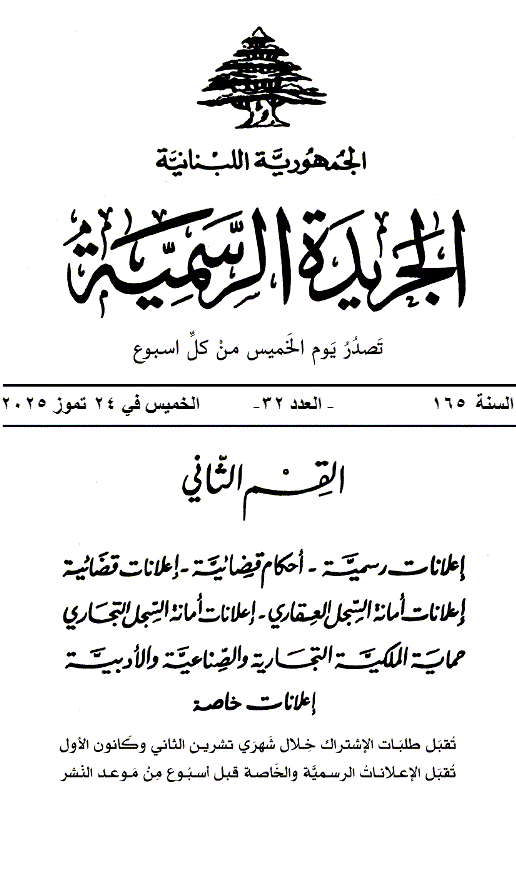 الجمهوريَّة اللبنانيَّة
الجريدة الرسميَّة
تَصدُرُ يَوم الخَميس منْ كلِّ اسبوع
السنة ١٦٥ - العدد ٣٢- الخميس في ٢٤ تموز ٢٠٢٥
القِسْم الثّاني
إعلانات رسميَّة - أحكام قضائيَّة - إعلانات قضائية
إعلانات أمانة السِّجل العقاري - إعلانات أمانة السِّجل التجاري
حماية الملكيَّة التجارية والصِّناعيَّة والأدبيَّة
إعلانات خاصة
تُقبَل طلبَات الإشتراك خِلال شَهرَي تشرين الثاني وكَانون الأول
تُقبَل الإعلاناتُ الرسميَّة والخَاصة قبل أسبُوع مِنْ مَوعد النَشر